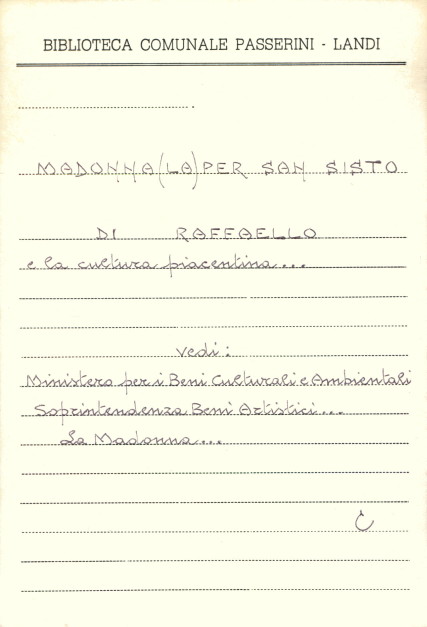 BIBLIOTECA COMUNALE PASSERINI - LANDI
MADONNA(LA)PER SAN SISTO
DI RAFFAELLO
e la cultura piacentina...
vedi:
Ministero per i Beni Culturali e Ambientali
Soprintendenza Beni Artistici...
La Madonna...
C